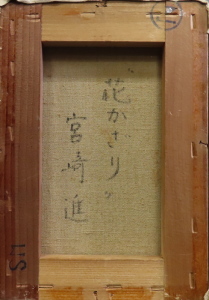 〝花かざり〟
宮崎進
SII